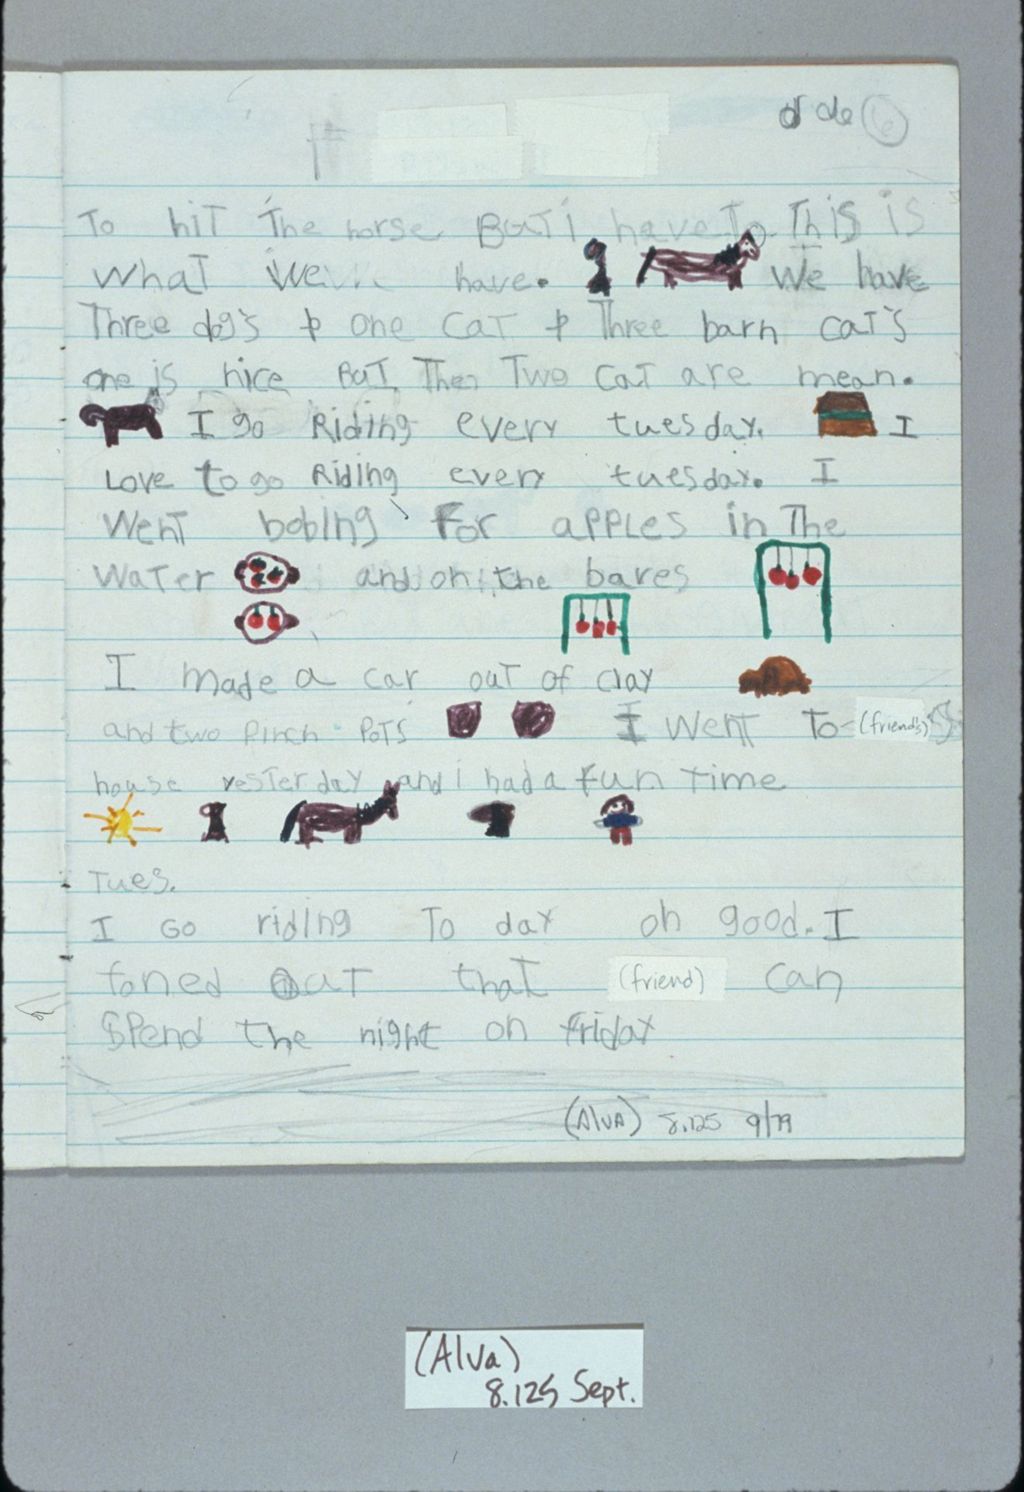 To hit The horse BuT i have To This is
What we have. We have
Three dog's & one CaT & Three barn CaT's
one is nice BuT Then Two CaT are mean.
I go Riding every tuesday. I
Love to go Riding every tuesday. I
WenT bobing For apples in The
WaTer and on the bares
I made a car ouT of clay
and two Pinch PoTs I WenT To (friend's)
house yesterday and i had a fun Time
Tues.
I Go riding To day oh good. I
foned OuT thaT (friend) Can
Spend the night on friday
(Alva) 8.125 9/79
(Alva)
8.125 Sept.